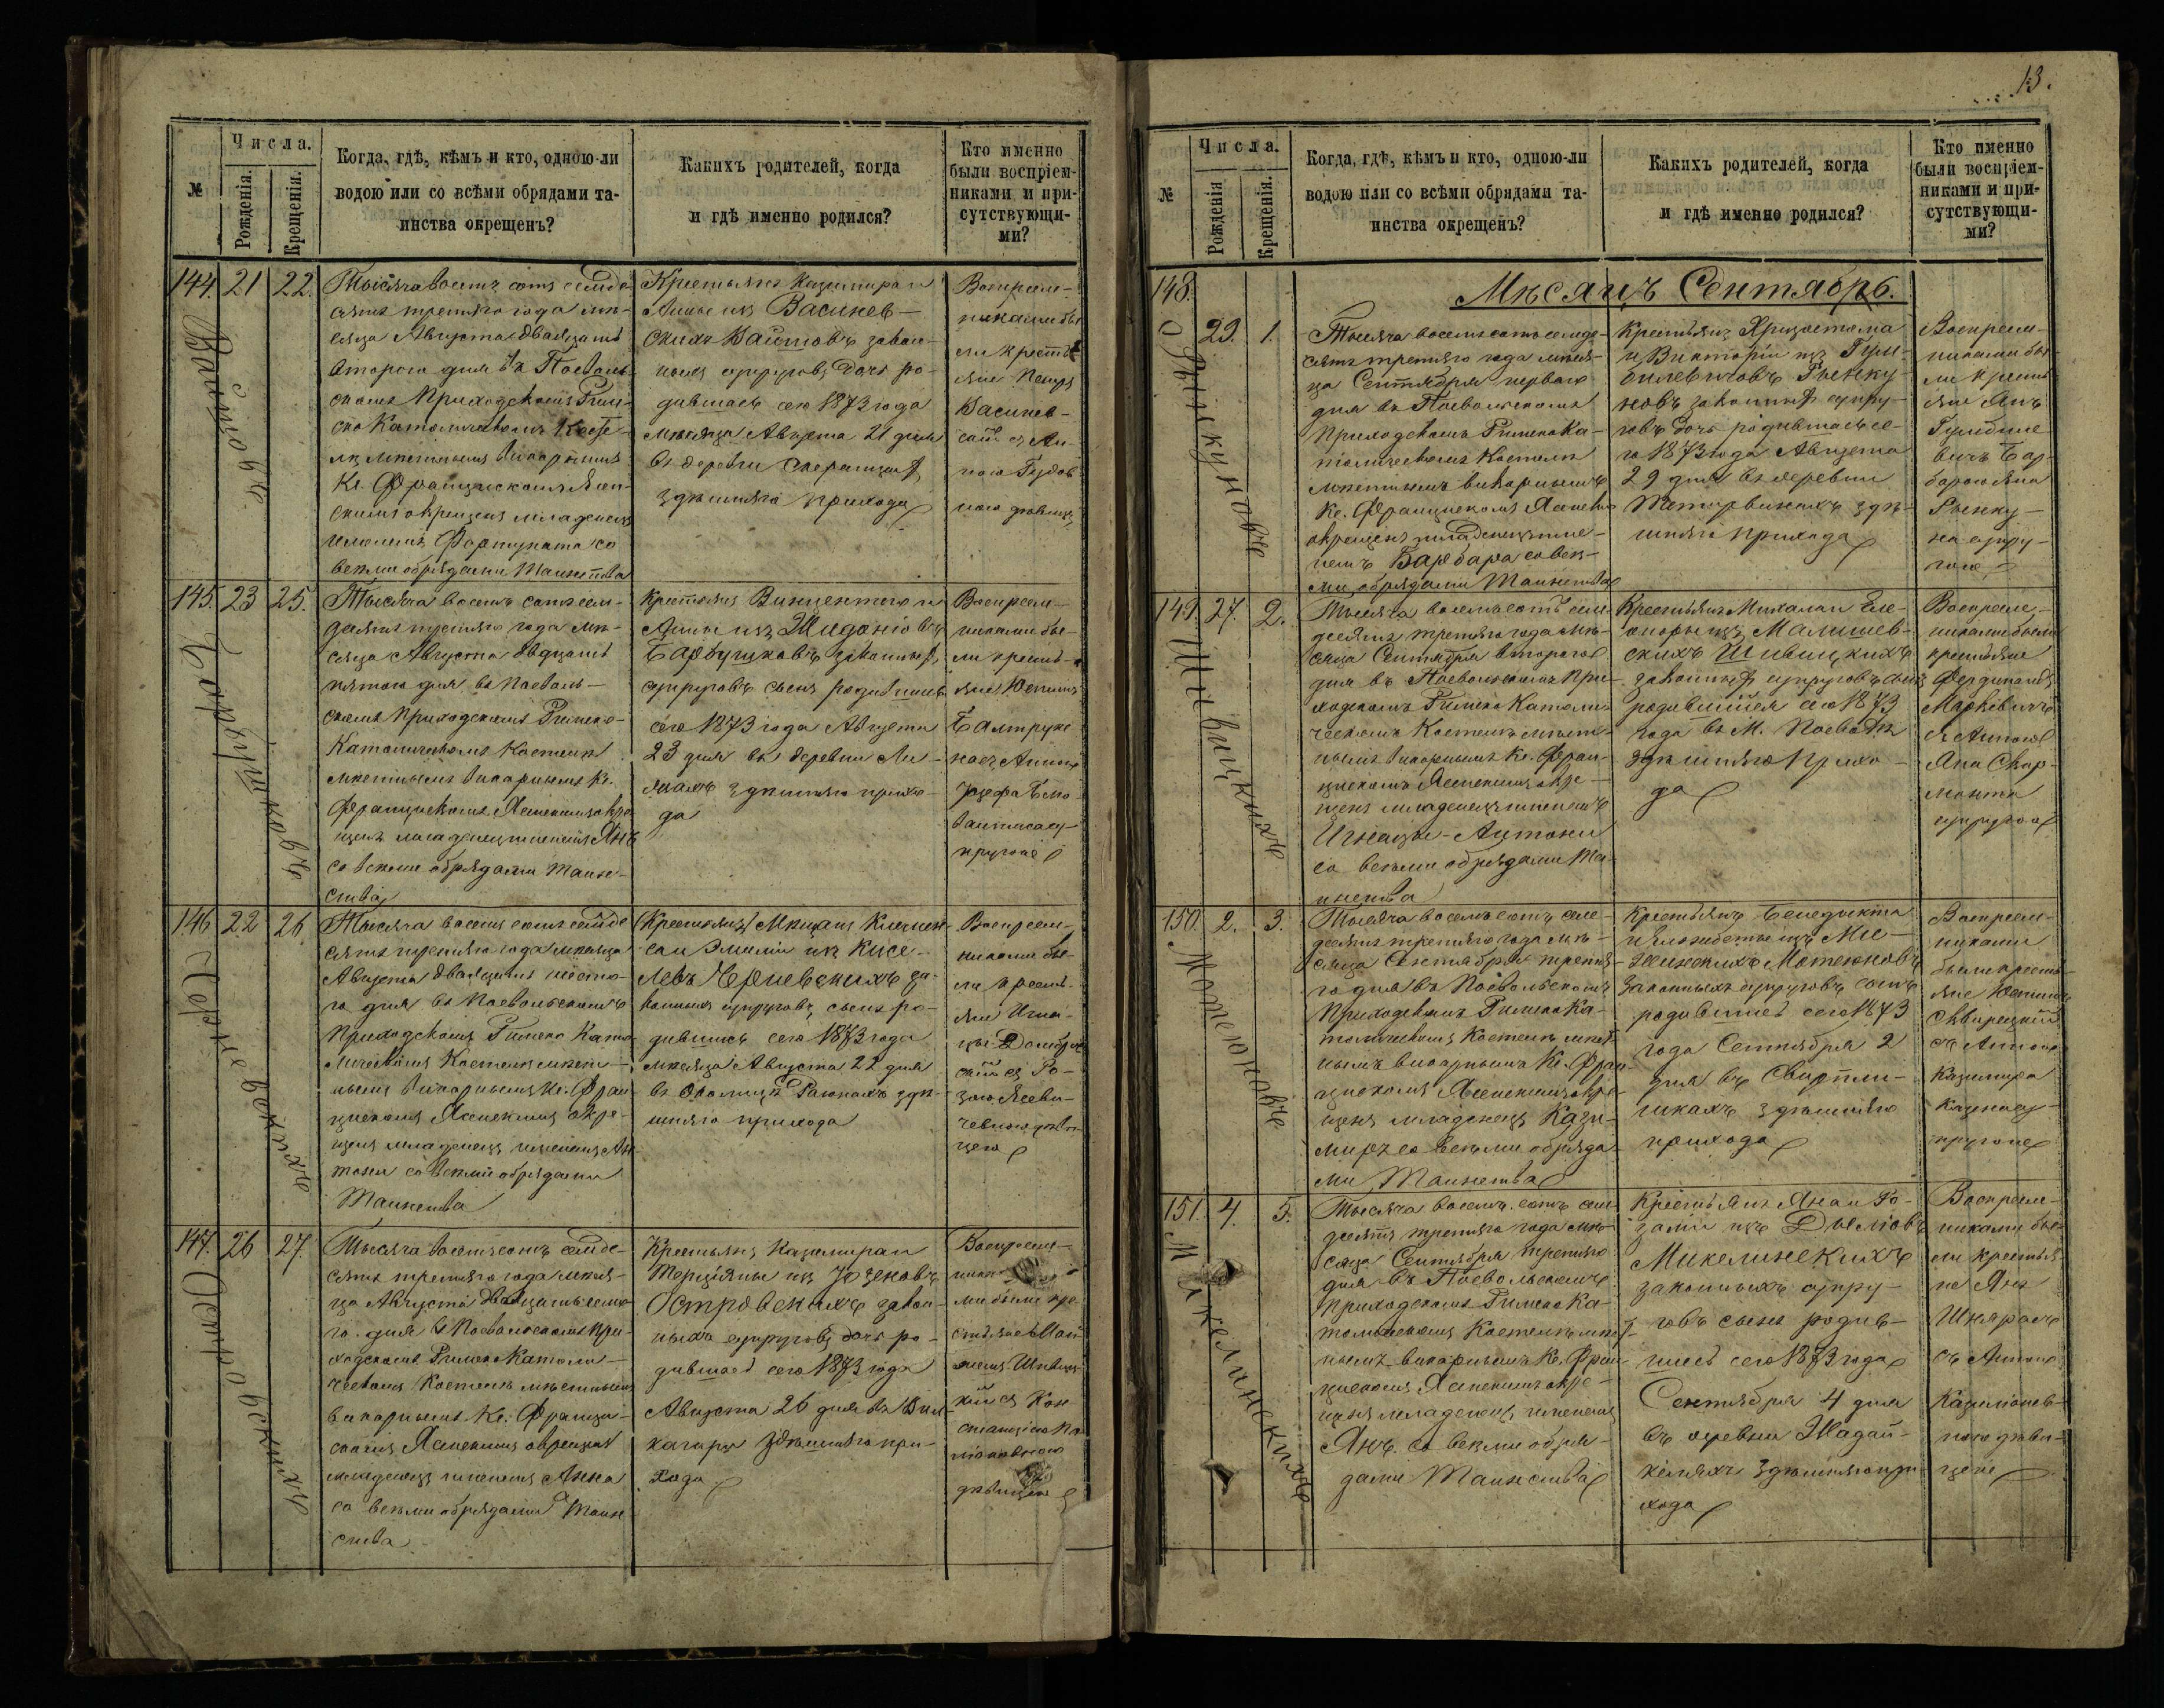 13.
№
Числа.
Рожденія.
Крещенія.
Когда, гдѣ, кѣмъ и кто, одною-ли
водою или со всѣми обрядами та-
инства окрещенъ?
Какихъ родителей, когда
и гдѣ именно родился?
Кто именно
были воспріем-
никами и при-
сутствующи-
ми?
144. 21 22.
Войтовъ
Тысяча восемъ сотъ семьде
сятъ третяго года мѣ-
сяца Августа двадцать
второго дня въ Поволь-
скомъ Приходскомъ Рим-
ско Католическомъ Косте-
лѣ мѣстнымъ викарнымъ
Кс. Францискомъ Ясен-
скимъ окрещенъ младенецъ
именемъ Фортуната со
всѣми обрядами Таинства
Крестьянъ Казимира и
Анны изъ Васинев-
скихъ Войтовъ закон-
ныхъ супруговъ дочь ро-
дившаяся сего 1873 года
мѣсяца Августа 21 дня
въ деревни
здѣшняго прихода
Воспріем-
никами бы
ли крестья
яне Петръ
Васинев-
скій съ Ан-
ною
ною дѣвицею
145. 23 25.
Барбушковъ
Тысяча восемъ сотъ семь-
десятъ третяго года мѣ-
сяца Августа двадцать
пятого дня въ Поволь-
скомъ Приходскомъ Римско-
Католическомъ Костелѣ
мѣстнымъ викарнымъ Кс.
Францискомъ Ясенскимъ окре
щенъ младенецъ именемъ Янъ
со всѣми обрядами Таин-
ства
Крестьянъ Винцентого и
Анны изъ
Барбушковъ законныхъ
супруговъ сынъ родившись
сего 1873 года Августа
23 дня въ деревни Ли-
здѣшняго прихо-
да
Воспріем-
никами бы-
ли кресть-
яне Юстинъ
съ Анною
Юзефа
супругою
146 22 26.
Черневскихъ
Тысяча восемъ сотъ семьде
сятъ третяго года мѣсяца
Августа двадцать шесто-
го дня въ Повольскомъ
Приходскомъ Римско Като
лическомъ Костелѣ мѣст-
нымъ викарнымъ Кс. Фран
цискомъ Ясенскимъ окре-
щенъ младенецъ именемъ Ан
тони со всѣми обрядами
Таинства
са и Эмиліи изъ Кисе-
левъ Черневскихъ за-
конныхъ супруговъ сынъ ро-
дившись сего 1873 года
мѣсяца Августа 22 дня
въ Околицѣ здѣ-
шняго прихода
Воспріем-
никами бы-
ли кресть-
яне Игна-
цы Домбров
скій съ Ро-
залею
дѣви-
цею
147. 26 27.
Островскихъ
Тысяча восемъ сотъ семьде-
сятъ третяго года мѣся-
ца Августа двадцать седмо
го дня въ Повольскомъ При-
ходскомъ Римско Католи-
ческомъ Костелѣ мѣстнымъ
викарнымъ Кс. Францис-
комъ Ясенскимъ окрещенъ
младенецъ именемъ Анна
со всѣми обрядами Таин
ства
Крестьянъ Казимира и
Терціяны изъ
Островскихъ закон-
ныхъ супруговъ дочь ро-
дившаяся сего 1873 года
Августа 26 дня въ
здѣшняго при-
хода
Воспріем-
ми были кре
кій съ Кон
станціею
дѣвицею
№
Числа.
Рожденія
Крещенія.
Когда, гдѣ, кѣмъ и кто, одною-ли
водою или со всѣми обрядами та-
инства окрещенъ?
Какихъ родителей, когда
и гдѣ именно родился?
Кто именно
были воспріем-
никами и при-
сутствующи-
ми?
Мѣсяцъ Сентябрь.
148. 29. 1.
Тысяча восемъ сотъ семьде-
сятъ третяго года мѣся-
ца Сентября первого
дня въ Повольскомъ
Приходскомъ Римско Ка-
толическомъ Костелѣ
мѣстнымъ викарнымъ
Кс. Францискомъ
окрещенъ младенецъ име-
немъ Барбара со всѣ-
ми обрядами Таинства
Крестьянъ Хризостома
и Викторіи изъ Гум-
билевичовъ Рынку-
новъ законныхъ супру-
говъ дочь родившаяся се-
го 1873 года Августа
29 дня въ деревни
здѣ-
шняго прихода
Воспріем-
никами бы-
ли кресть
яне Янъ
Гумбиле
вичъ Бар-
барою Яна
Рынку-
на супру-
гою
149. 27. 2.
Шивицкихъ
Тысяча восемъ сотъ семь
десятъ третяго года мѣ-
сяца Сентября второго
дня въ Повольскомъ При-
ходскомъ Римско Католи-
ческомъ Костелѣ мѣст
нымъ викарнымъ Кс. Фран-
цискомъ Ясенскимъ окре-
щенъ младенецъ именемъ
Игнацы-Антони
со всѣми обрядами Та-
инства
Крестьянъ Михала и Еле-
оноры изъ Малишев-
скихъ Шивицкихъ
законныхъ супруговъ сынъ
родившійся сего 1873
года въ М. Поволѣ
здѣшняго Прихо-
да
Воспріем-
никами были
крестьяне
Фердинандъ
Маркевичъ
съ Антоною
Яна Свир-
монта
супругою
150. 2. 3.
Мотеюновъ
Тысяча восемъ сотъ семь
десятъ третяго года мѣ-
сяца Сентября третя-
го дня въ Повольскомъ
Приходскомъ Римско Ка-
толическомъ Костелѣ мѣст
нымъ викарнымъ Кс. Фран-
цискомъ Ясенскимъ окре-
щенъ младенецъ Кази-
миръ со всѣми обряда-
ми Таинства
Крестьянъ Бенедыкта
и Елжбеты изъ Ми-
Мотеюновъ
законныхъ супруговъ сынъ
родившись сего 1873
года Сентября 2
дня въ
здѣшняго
прихода
Воспріем-
никами
были кресть-
яне Юстинъ
съ Антоною
Казимира
су-
пругою
151. 4. 5.
Микелинскихъ
Тысяча восемъ сотъ семь
десятъ третяго года мѣ-
сяца Сентября третяго
дня въ Повольскомъ
Приходскомъ Римско Ка-
толическомъ Костелѣ мѣст-
нымъ викарнымъ Кс. Фран-
цискомъ Ясенскимъ окре-
щенъ младенецъ именемъ
Янъ со всѣми обря-
дами Таинства
Крестьянъ Яна и Ро-
заліи изъ Дымовъ
Микелинскихъ
законныхъ супру-
говъ сынъ родив-
шись сего 1873 года
Сентября 4 дня
въ деревни Жадай-
здѣшняго при
хода
Воспріем-
никами бы-
ли крестья
не Янъ
съ Антоною
ною дѣви-
цею